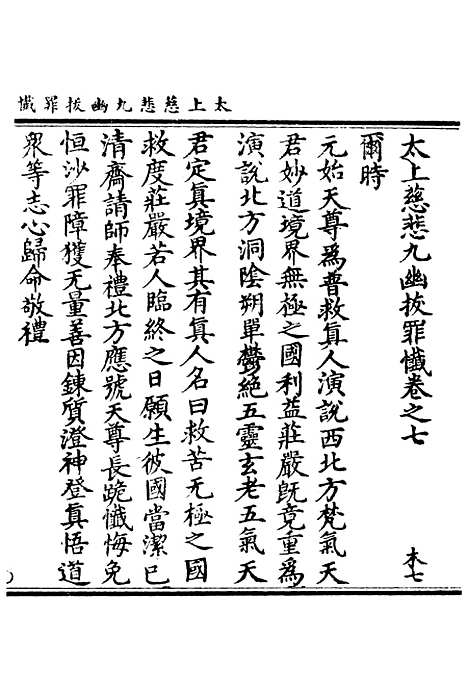 太上慈悲九幽拔罪懺
太上慈悲九幽拔罪懺卷之七 本七
爾時
元始天尊爲普救眞人演說西北方梵氣天
君妙道境界無極之國利益莊嚴旣竟重爲
演說北方洞陰朔單鬱絕五靈玄老五氣天
君定眞境界其有眞人名曰救苦无極之國
救度莊嚴若人臨終之日願生彼國當潔已
清齋請師奉禮北方應號天尊長跪懺悔免
恒沙罪障獲无量善因鍊質澄神登眞悟道
眾等志心歸命敬禮